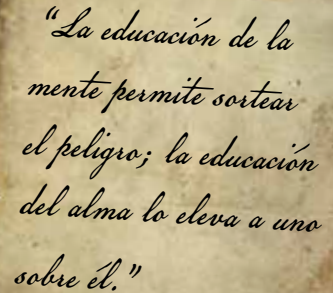 “La educación de la
mente permite sortear
el peligro; la educación
del alma lo eleva a uno
sobre él.”